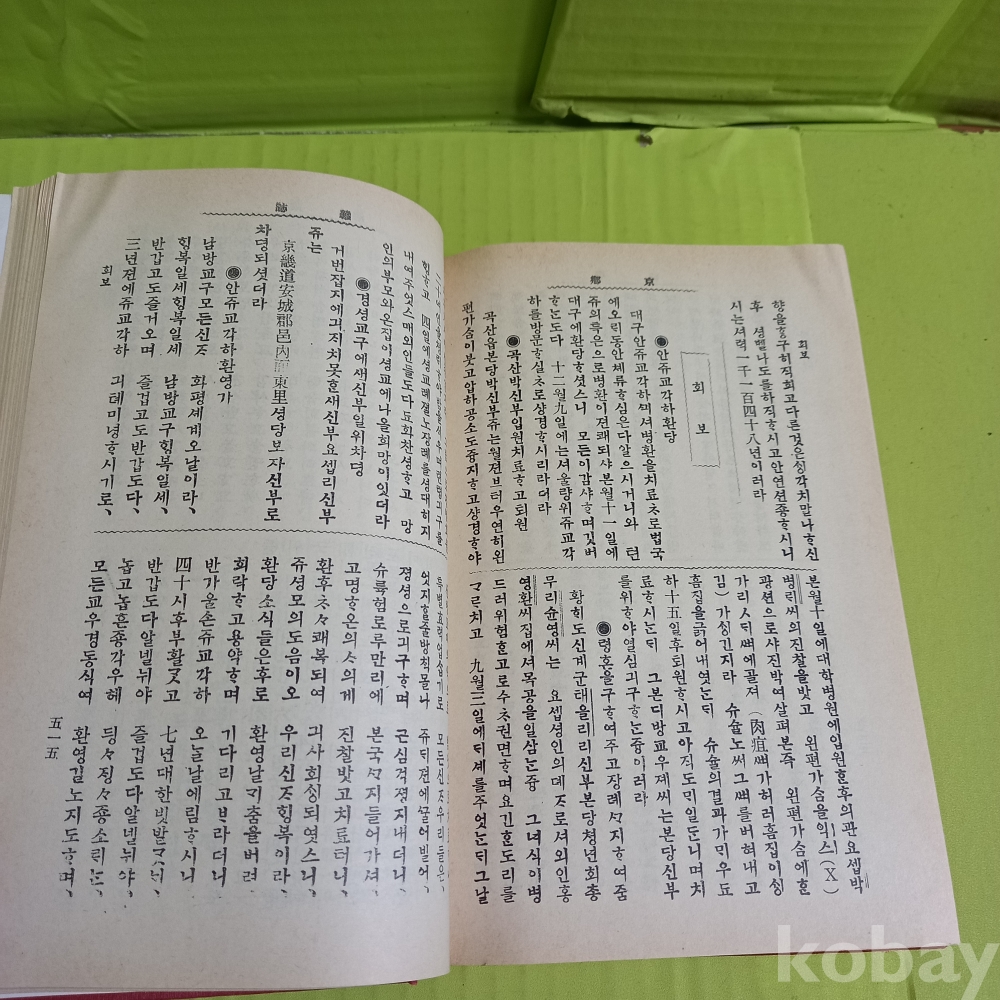 京鄕
회보
향을ᄒᆞᆼ구히직희고다른것은ᄉᆡᆼ각치말나ᄒᆞ신
후 셩벨나도를하직ᄒᆞ시고안연션죵ᄒᆞ시니
시는셔력一千一百四十八년이러라
회보
●안쥬교각하환당
대구안쥬교각하ᄭᅴ셔병환을치료ᄎᆞ로법국
에오ᄅᆡ동안체류ᄒᆞ심은다알으시거니와 련
쥬의특은으로병환이젼쾌되샤본월十一일에
대구에환당ᄒᆞ셧스니 모든이감샤ᄒᆞ며깃버
ᄒᆞ는도다 十二월九일에는셔울량위쥬교각
하를방문ᄒᆞ실ᄎᆞ로샹경ᄒᆞ시리라더라
●곡산박신부입원치료ᄒᆞ고퇴원
곡산읍본당박신부쥬는월젼브터우연히왼
편가슴이붓고압하공소도즁지ᄒᆞ고샹경ᄒᆞ야
본월十일에대학병원에입원ᄒᆞᆫ후의관요셉박
병ᄅᆡ씨의진찰을밧고 왼편가슴을익스(X)
광션으로샤진박여살펴본즉 왼편가슴에ᄒᆞᆫ
가리ᄉᆞᄃᆡᄲᅧ에골져(肉疽ᄲᅧ가허러흠집이ᄉᆡᆼ
김)가ᄉᆡᆼ긴지라 슈슐노써그ᄲᅧ를버혀내고
흠집을긁어내엿는ᄃᆡ 슈슐의결과가ᄆᆡ우됴
하十五일후퇴원ᄒᆞ시고아직도ᄆᆡ일ᄃᆞᆫ니며치
료ᄒᆞ시는ᄃᆡ 그본ᄃᆡ방교우제씨는본당신부
를위ᄒᆞ야열심긔구ᄒᆞ는즁이러라
●령혼을구ᄒᆞ여주고장례ᄭᆞ지ᄒᆞ여줌
황ᄒᆡ도신계군태을리리신부본당쳥년회총
무리윤영씨는 요셉셩인의데ᄌᆞ로셔외인홍
영환씨집에셔목공을일삼는즁 그녀식이병
드러위험ᄒᆞᆫ고로수ᄎᆞ권면ᄒᆞ며요긴ᄒᆞᆫ도리를
ᄀᆞᄅᆞ치고 九월三일에ᄃᆡ셰를주엇는ᄃᆡ그날
雜誌
ᄒᆡᆼᄒᆞ고 四일에셩교례졀노장례를셩대히지
내여주엇스매외인들도다됴화찬셩ᄒᆞ고 망
인의부모와온집이셩교에나올희망이잇더라
●경셩교구에새신부일위차뎡
거번잡지에긔지치못ᄒᆞᆫ새신부요셉리신부
쥬는
京畿道安城郡邑內面東里셩당보자신부로
차뎡되셧더라
●안쥬교각하환영가
남방교구모든신ᄌᆞ 화평셰계오날이라、
ᄒᆡᆼ복일세ᄒᆡᆼ복일세 남방교구ᄒᆡᆼ복일세、
반갑고도즐거오며 즐겁고도반갑도다、
三년젼에쥬교각하 긔톄미녕ᄒᆞ시기로、
회보
특별효력업습기로 모든신ᄌᆞ우리들은、
엇지ᄒᆞᆯ줄방칙몰나 쥬ᄃᆡ젼에ᄭᅮᆯ어빌어、
졍셩으로긔구ᄒᆞ며 근심걱졍지내더니、
슈륙험로루만리에 본국ᄭᆞ지들어가셔、
고명ᄒᆞ온의ᄉᆞ의게 진찰밧고치료터니、
환후ᄎᆞᄎᆞ쾌복되여 긔사회ᄉᆡᆼ되엿스니、
쥬셩모의도음이오 우리신ᄌᆞᄒᆡᆼ복이라、
환당소식들은후로 환영날ᄌᆞ춤을버려
희락ᄒᆞ고용약ᄒᆞ며 기다리고ᄇᆞ라더니
반가울손쥬교각하 오ᄂᆞᆯ날에림ᄒᆞ시니
四十시후부활ᄀᆞᆺ고 七년대한빗발ᄀᆞᆺ네、
반갑도다알넬뉘야 즐겁도다알넬뉘야、
놉고놉흔죵각우헤 ᄃᆡᆼᄃᆡᆼ졍졍죵소ᄅᆡ는、
모든교우경동식여 환영길노지도ᄒᆞ며、
五一五
kobay